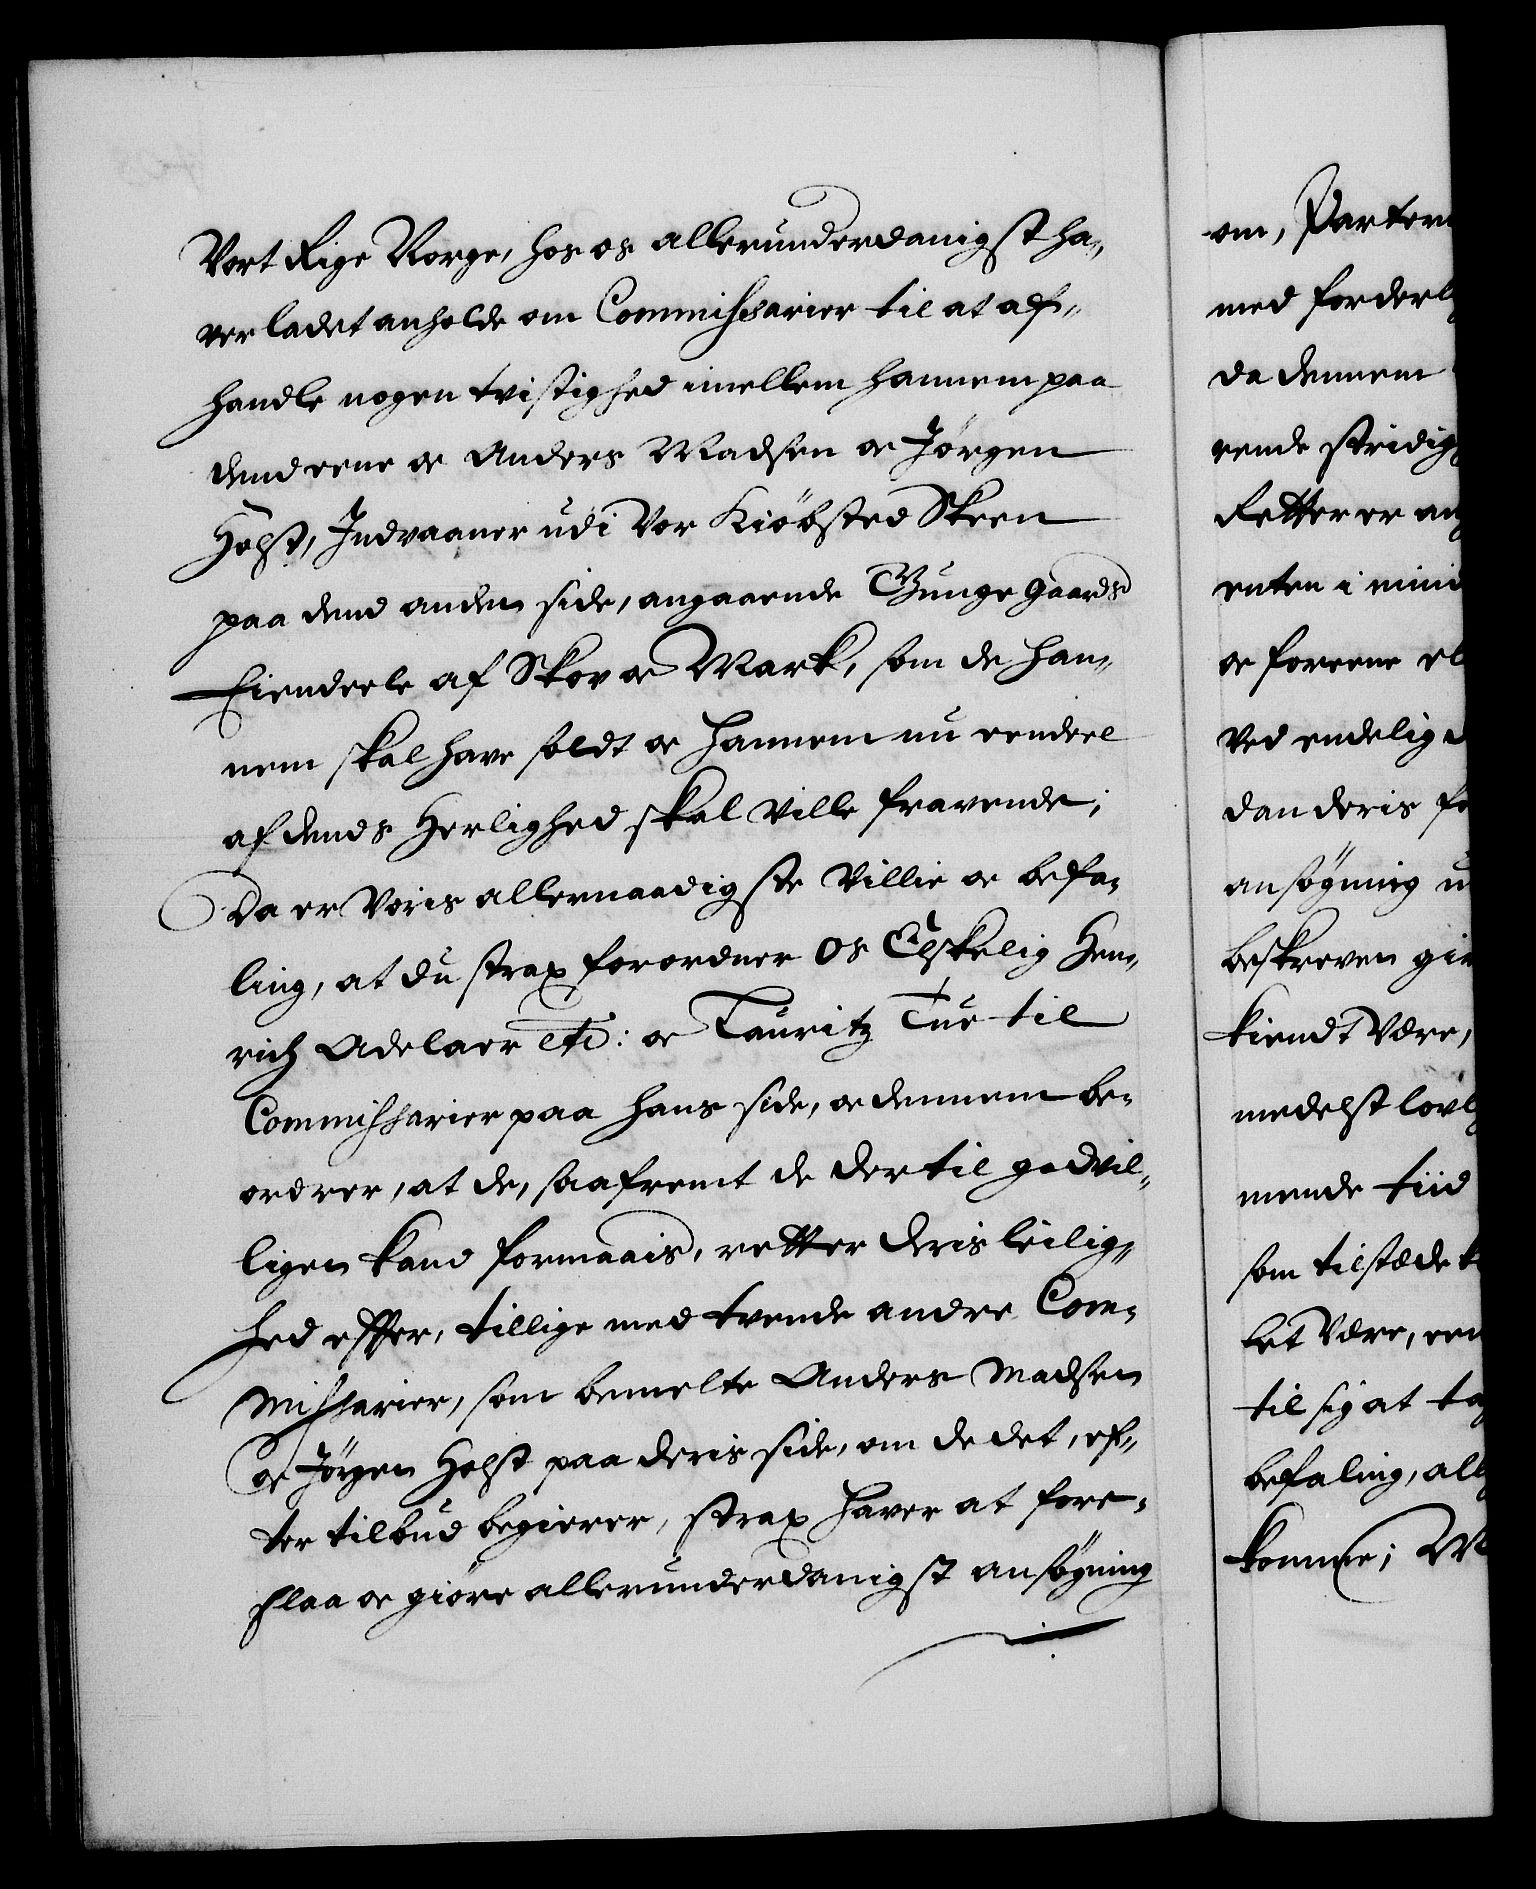 Vort Rige Norge, hos os allerunderdanigst ha-
ver ladet anholde om Commissarier til at af-
handle nogen tvistighed imellem hannem paa
dend eene og Anders Madsen og Jørgen
Holst, Indvaaner udi Vor Kiöbsted Skeen
paa dend anden side, angaaende Gaards
Eiendeele af Skov og Mark, som de han-
nem skal have soldt og hannem nu eendeel
af dends Herlighed skal ville fravende;
Da er Voris allernaadigste Villie og befa-
ling, at du strax forordner Os Elskelig Hen-
rich Adelaer etc: og Lauritz Tue til
Commissarier paa hans side, og dennem be-
ordrer, at de, saafremt de dertil godvil-
ligen kand formaais, retter deris leilig-
hed effter, tillige med tvende andre Com-
missarier, som bemelte Anders Madsen
og Jörgen Holst paa deris side, om de det, ef-
ter tilbud begierer, strax haver at fore-
slaa og giöre allerunderdanigst ansögning
om, Partern
med forderl
da dennem
rende stridig
Retter er an
enten i mind
og foreene el
ved endelig d
dan deris fo
ansögning u
beskreven giv
kiendt være,
medelst lovl
mende tiid
som tilstæde k
let være, een
til sig at ta
befaling, all
komme; M